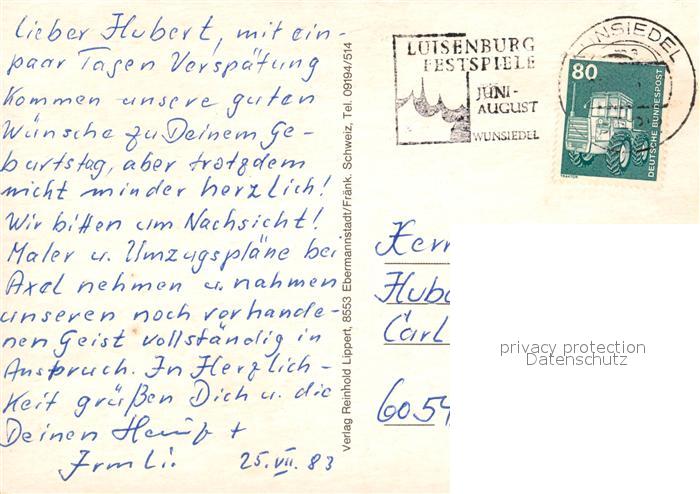 lieber Hubert, mit ein-
paar Tagen Verspätung
kommen unsere guten
Wünsche zu Deinem Ge-
burtstag, aber trotzdem
nicht minder herzlich!
Wir bitten um Nachsicht!
Maler u. Umzugspläne bei
Axel nehmen u. nahmen
unseren noch vorhande-
nen Geist vollständig in
Anspruch. In Herzlich-
keit grüßen Dich u. die
Deinen
Irmli.
25.VII.83
Verlag Reinhold Lippert, 8553 Ebermannstadt/Fränk. Schweiz, Tel. 09194/514
LUISENBURG
FESTSPIELE
JUNI-
AUGUST
WUNSIEDEL
WUNSIEDEL
80
DEUTSCHE BUNDESPOST
TRAKTOR
Herr
Hub
Carl
6054
privacy protection
Datenschutz